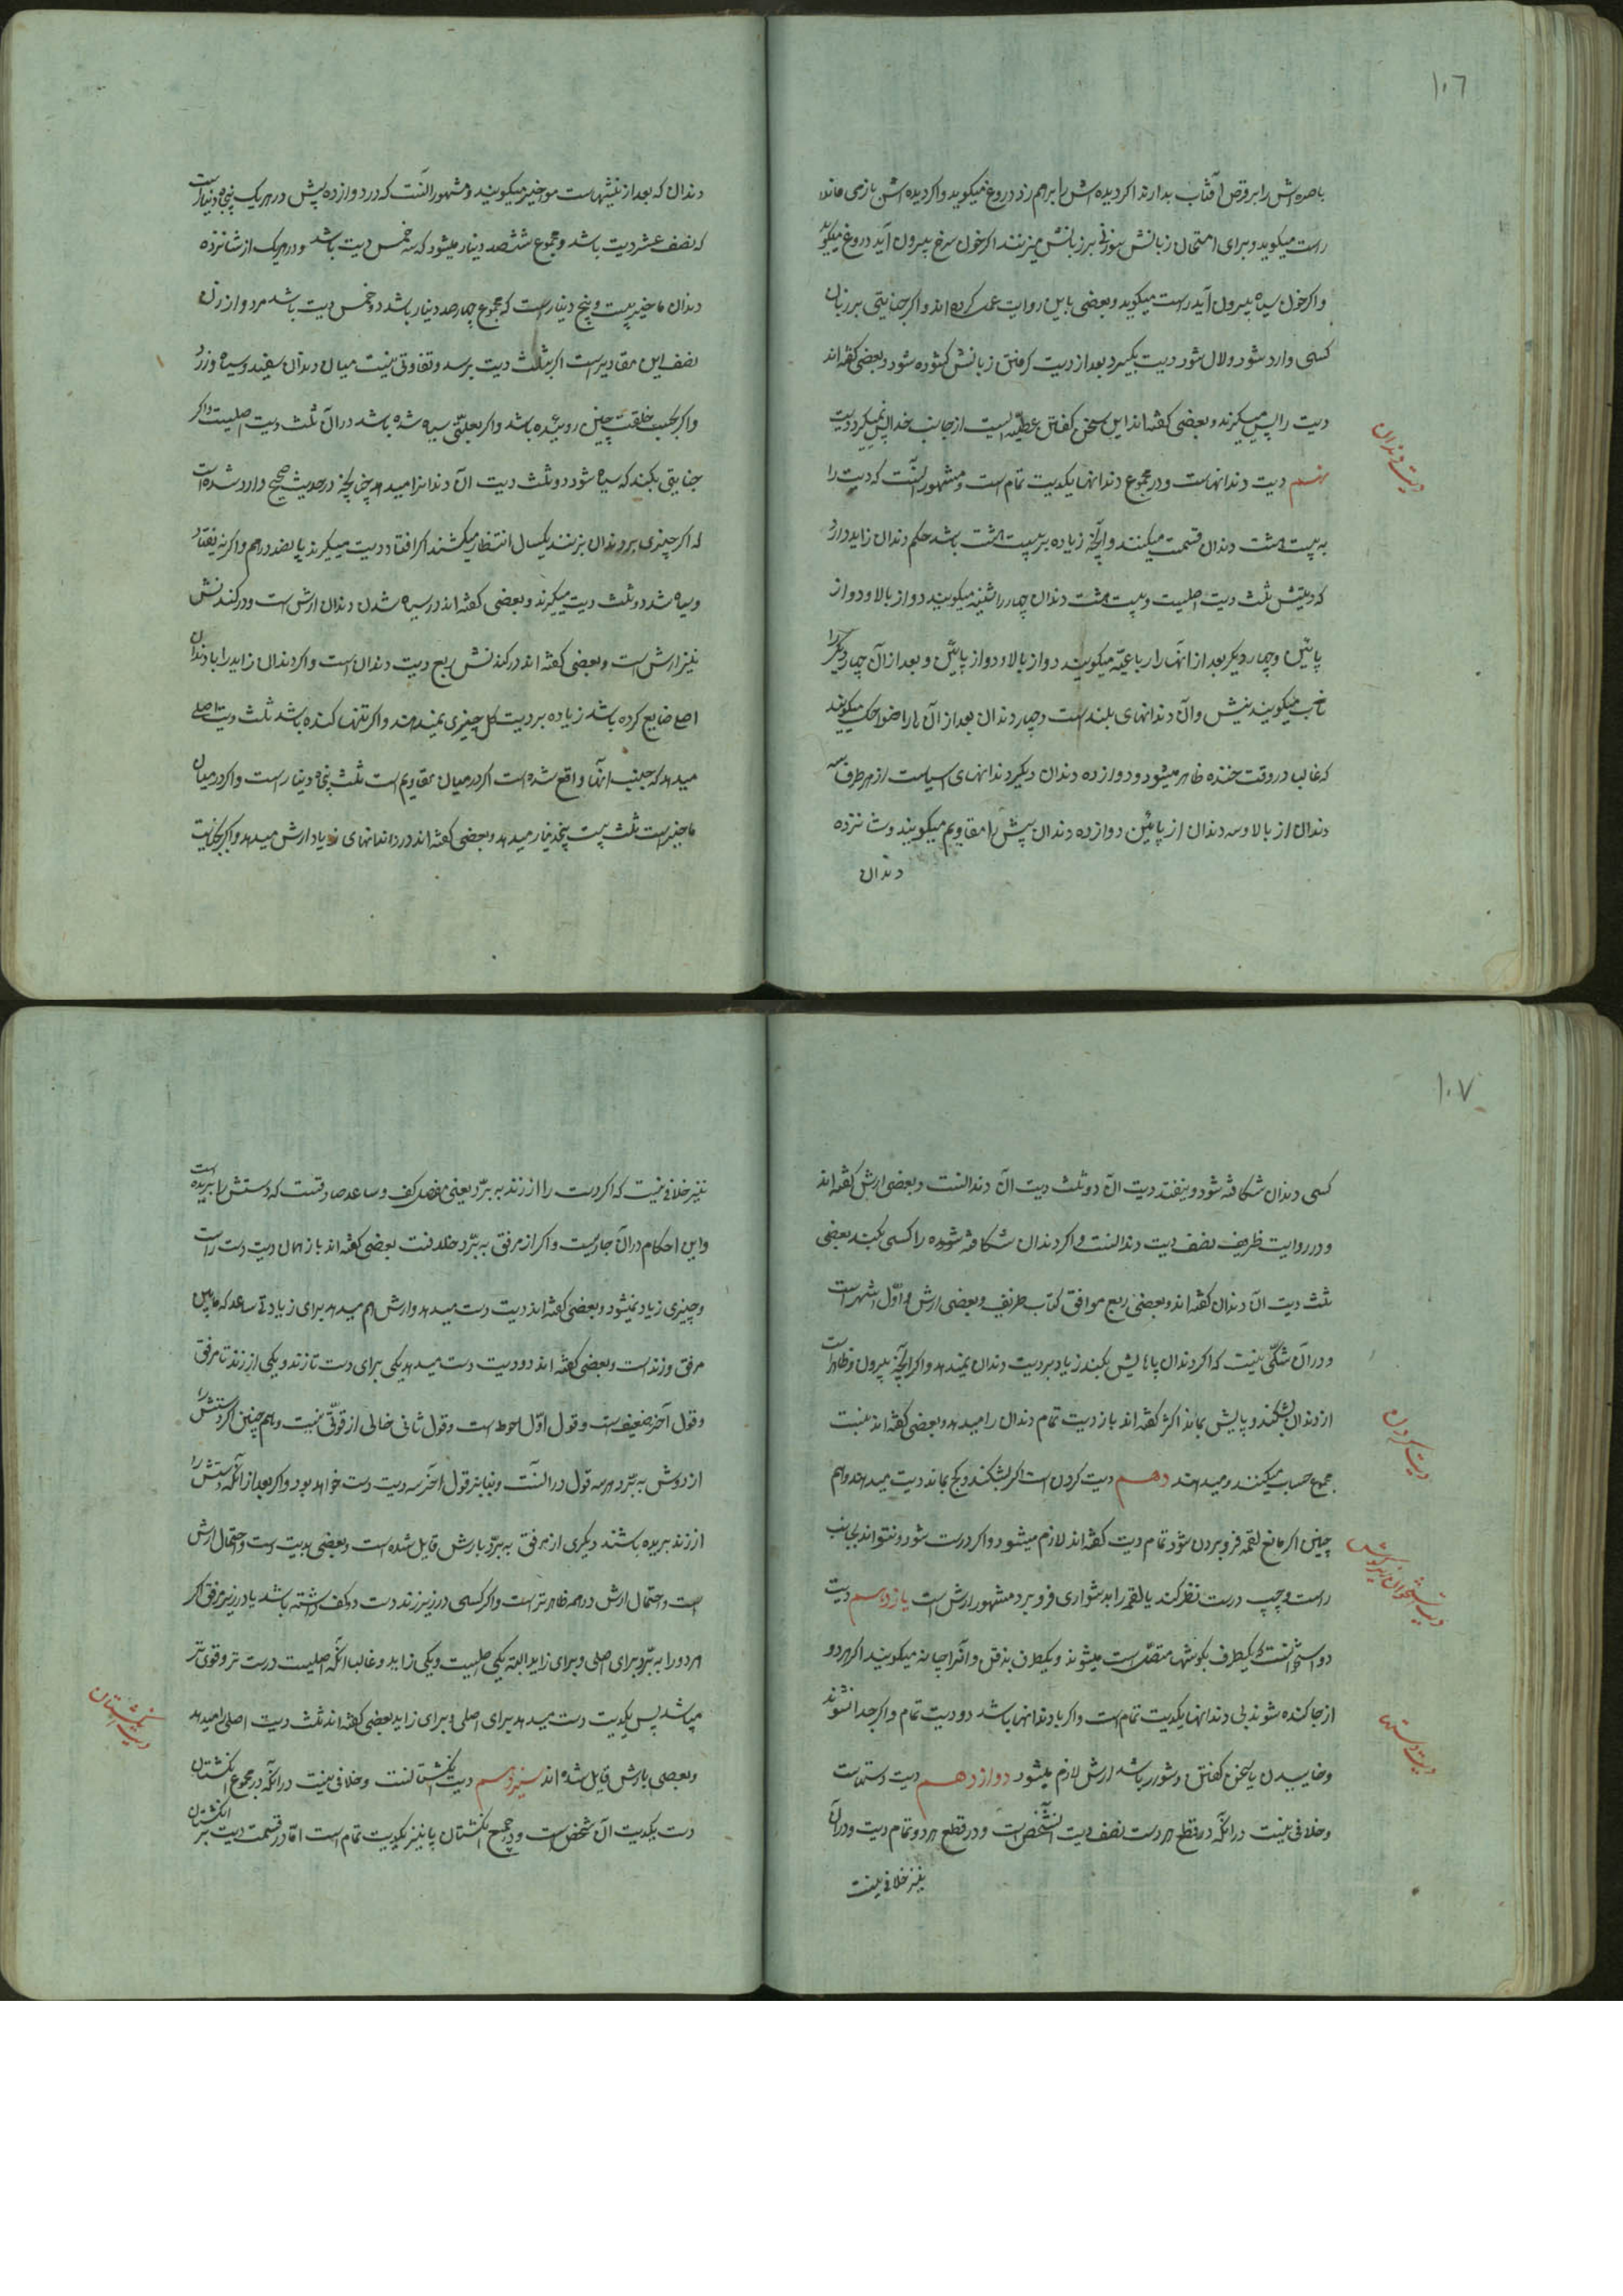 ۱۰۶
باصره‌اش را برابر قرص آفتاب بدارند اکر دیده‌اش را برهم زد دروغ میکوید و اکر دیده‌اش بازمی ماند
راست میکوید و برای امتحان زبانش سوزنی برزبانش میزنند اکر خون سرخ بیرون آید دروغ میکوید
و اکر خون سیاه بیرون آید راست میکوید و بعضی باین روایت عمل کرده‌اند و اکر جنایتی برزبان
کسی وارد شود و لال شود دیت بکیرد بعد از دیت کرفتن زبانش کشوده شود و بعضی کفته‌اند
دیت را پس میکیرند و بعضی کفته‌اند این سخن کفتن عطیّه‌ایست از جانب خدا پس نمیکرد دیت
دیت دندان
نهم دیت دندانهاست و در مجموع دندانها یکدیت تمام است و مشهور آنست که دیت را
به بیست و هشت دندان قسمت میکنند و آنچه زیاده بر بیست و هشت باشد حکم دندان زاید دارد
که دیتش ثلث دیت اصلیست و بیست و هشت دندان چهار را ثنیه میکویند دو از بالا و دو از
پائین و چهار دیکر بعد از آنها را رباعیّه میکویند دو از بالا و دو از پائین و بعد از آن چهار دیکر را
ناب میکویند نیش و آن دندانهای بلند است و چهار دندان بعد از آن را ضواحک میکویند
که غالبا در وقت خنده ظاهر میشود و دوازده دندان دیکر دندانهای آسیاست از هر طرف سه
دندان از بالا و سه دندان از پائین دوازده دندان پیش را مقادیم میکویند و شانزده
دندان
دندان که بعد از نیشهاست مواخیر میکویند و مشهور آنست که در دوازده پیش در هریک پنجاه دینار است
که نصف عشر دیت باشد و مجموع ششصد دینار میشود که سه خمس دیت باشد و در هریک از شانزده
دندان ماخیر بیست و پنج دینار است که مجموع چهارصد دینار باشد دو خمس دیت باشد مرد و از زن
نصف این مقادیر است اکر بثلث دیت برسد و تفاوتی نیست میان دندان سفید و سیاه و زرد
و اکر بحسب خلقت چنین روییده باشد و اکر بعلتی سیاه شده باشد در آن ثلث دیت اصلیست و اکر
جنایتی بکند که سیاه شود دو ثلث دیت آن دندانرا میدهد چنانچه در حدیث صحیح وارد شده است
که اکر چیزی بر دندان بزنند یکسال انتظار میکشند اکر افتاد دیت میکیرند پانصد درهم و اکر نیفتاد
و سیاه شد دو ثلث دیت میکیرند و بعضی کفته‌اند در سیاه شدن دندان ارش است و در کندنش
نیز ارش است و بعضی کفته‌اند در کندنش ربع دیت دندان است و اکر دندان زاید را با دندان
اصلی ضایع کرده باشد زیاده بر دیت کل چیزی نمیدهند و اکر تنها کنده باشد ثلث دیت اصلی
میدهد که جنب آنها واقع شده است اکر در میان مقادیم است ثلث پنجاه دینار است و اکر در میان
ماخیر است ثلث بیست پنجدینار میدهد و بعضی کفته‌اند در دندانهای زیاد ارش میدهد و اکر بجنایت
۱۰۷
کسی دندان شکافته شود و نیفتد دیت آن دو ثلث دیت آن دندانست و بعضی ارش کفته‌اند
و در روایت ظریف نصف دیت دندانست و اکر دندان شکافته شوده را کسی بکند بعضی
ثلث دیت آن دندان کفته‌اند و بعضی ربع موافق کتاب ظریف و بعضی ارش و اوّل اشهر است
و در آن شکّی نیست که اکر دندان با پایش بکند زیاد بر دیت دندان نمیدهد و اکر آنچه بیرون و ظاهر است
از دندان بشکند و پایش بماند اکثر کفته‌اند باز دیت تمام دندان را میدهد و بعضی کفته‌اند بنسبت
دیت کردن
مجموع حساب میکنند و میدهند دهم دیت کردن است اکر بشکند و کج بماند دیت میدهد و هم
چنین اکر مانع لقمه فرو بردن شود تمام دیت کفته‌اند لازم میشود و اکر درست شود و نتواند بجانب
راست و چپ درست نظر کند یا لقمه را بدشواری فرو برد مشهور ارش است یازدهم دیت
دو استخوانست که یکطرف بکوشها متصّل است میشوند و یکطرف بذقن و آنرا چانه میکویند اکر هر دو
از جا کنده شوند بی دندانها یکدیت تمام است و اکر با دندانها باشد دو دیت تمام و اکر جدا نشوند
دیت دستها
و خاییدن یا سخن کفتن دشوار باشد ارش لازم میشود دوازدهم دیت دستهاست
و خلافی نیست در آنکه در قطع هر دست نصف دیت آنشخص است و در قطع هر دو تمام دیت و در آن
نیز خلافی نیست
نیز خلافی نیست که اکر دست را از زند به برّد یعنی مفصل کف و ساعد صادقست که دستش را بریده است
و این احکام در آن جاریست و اکر از مرفق به برّد خلافست بعضی کفته‌اند باز همان دیت دست راست
و چیزی زیاد نمیشود و بعضی کفته‌اند دیت دست میدهد و ارش هم میدهد برای زیادتی ساعد که مابین
مرفق و زند است و بعضی کفته‌اند دو دیت دست میدهد یکی برای دست تا زند و یکی از زند تا مرفق
و قول آخر ضعیف است و قول اوّل احوط است و قول ثانی خالی از قوّتی نیست و همچنین اکر دستش را
از دوش به برّد هر سه قول در آنست و بنابر قول آخر سه دیت دست خواهد بود و اکر بعد از آنکه دستش را
از زند بریده باشند دیکری از مرفق به برّد بارش قایل شده است و بعضی بدیت دست و احتمال ارش
است و احتمال ارش در همه ظاهرتر است و اکر کسی در زیر زند دست دو کف داشته باشد یا در زیر مرفق اکر
هر دو را به برّد برای اصلی و برای زاید البته یکی اصلیست و یکی زاید و غالبا آنکه اصلیست درست تر و قوی تر
میباشد پس یکدیت دست میدهد برای اصلی و برای زاید بعضی کفته‌اند ثلث دیت اصلی را میدهد
دیت انکشتان
و بعضی بارش قایل شده‌اند سیزدهم دیت انکشتانست و خلافی نیست در آنکه در مجموع انکشتان
دست یکدیت آن شخص است و در جمیع انکشتان پا نیز یکدیت تمام است امّا در قسمت دیت بر انکشتان